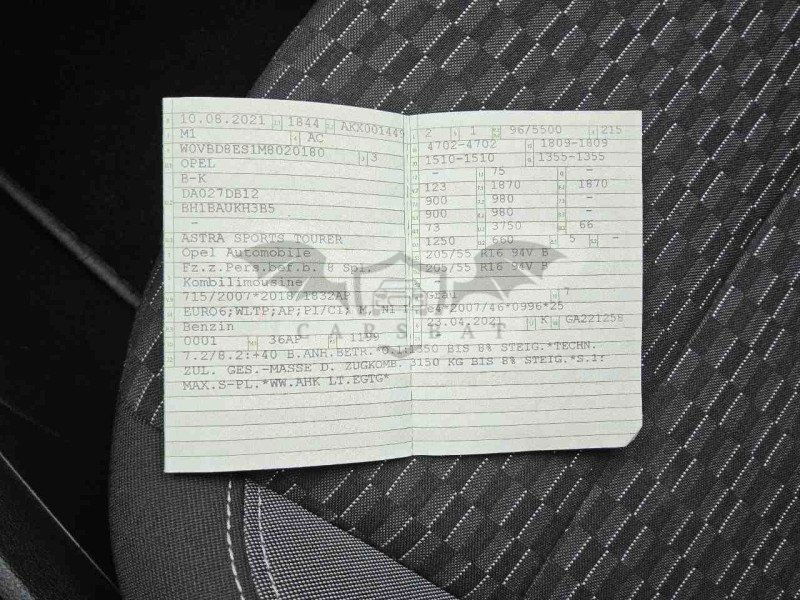 10.08.2021 1844 AKX001449
M1 AC
W0VBD8ES1M8020180 3
OPEL
B-K
DA027DB12
BH1BAUKH3B5
-
ASTRA SPORTS TOURER
Opel Automobile
Fz.z.Pers.bef.b. 8 Spl.
Kombilimousine
715/2007*2018/1832AP
EURO6;WLTP;AP;PI/CI; M, N1 I
Benzin
0001 36AP 1199
7.2/8.2:+40 B.ANH.BETR.*O.1:1350 BIS 8% STEIG.*TECHN.
ZUL. GES.-MASSE D. ZUGKOMB. 3150 KG BIS 8% STEIG.*S.1:
MAX.S-PL.*WW.AHK LT.EGTG*
2 1 96/5500 215
4702-4702 1809-1809
1510-1510 1355-1355
- 75 -
123 1870 1870
900 980 -
900 980 -
73 3750 66
1250 660 5 -
205/55 R16 94V B
205/55 R16 94V B
Grau 7
e4*2007/46*0996*25
23.04.2021 K GA221258
CARSBAT